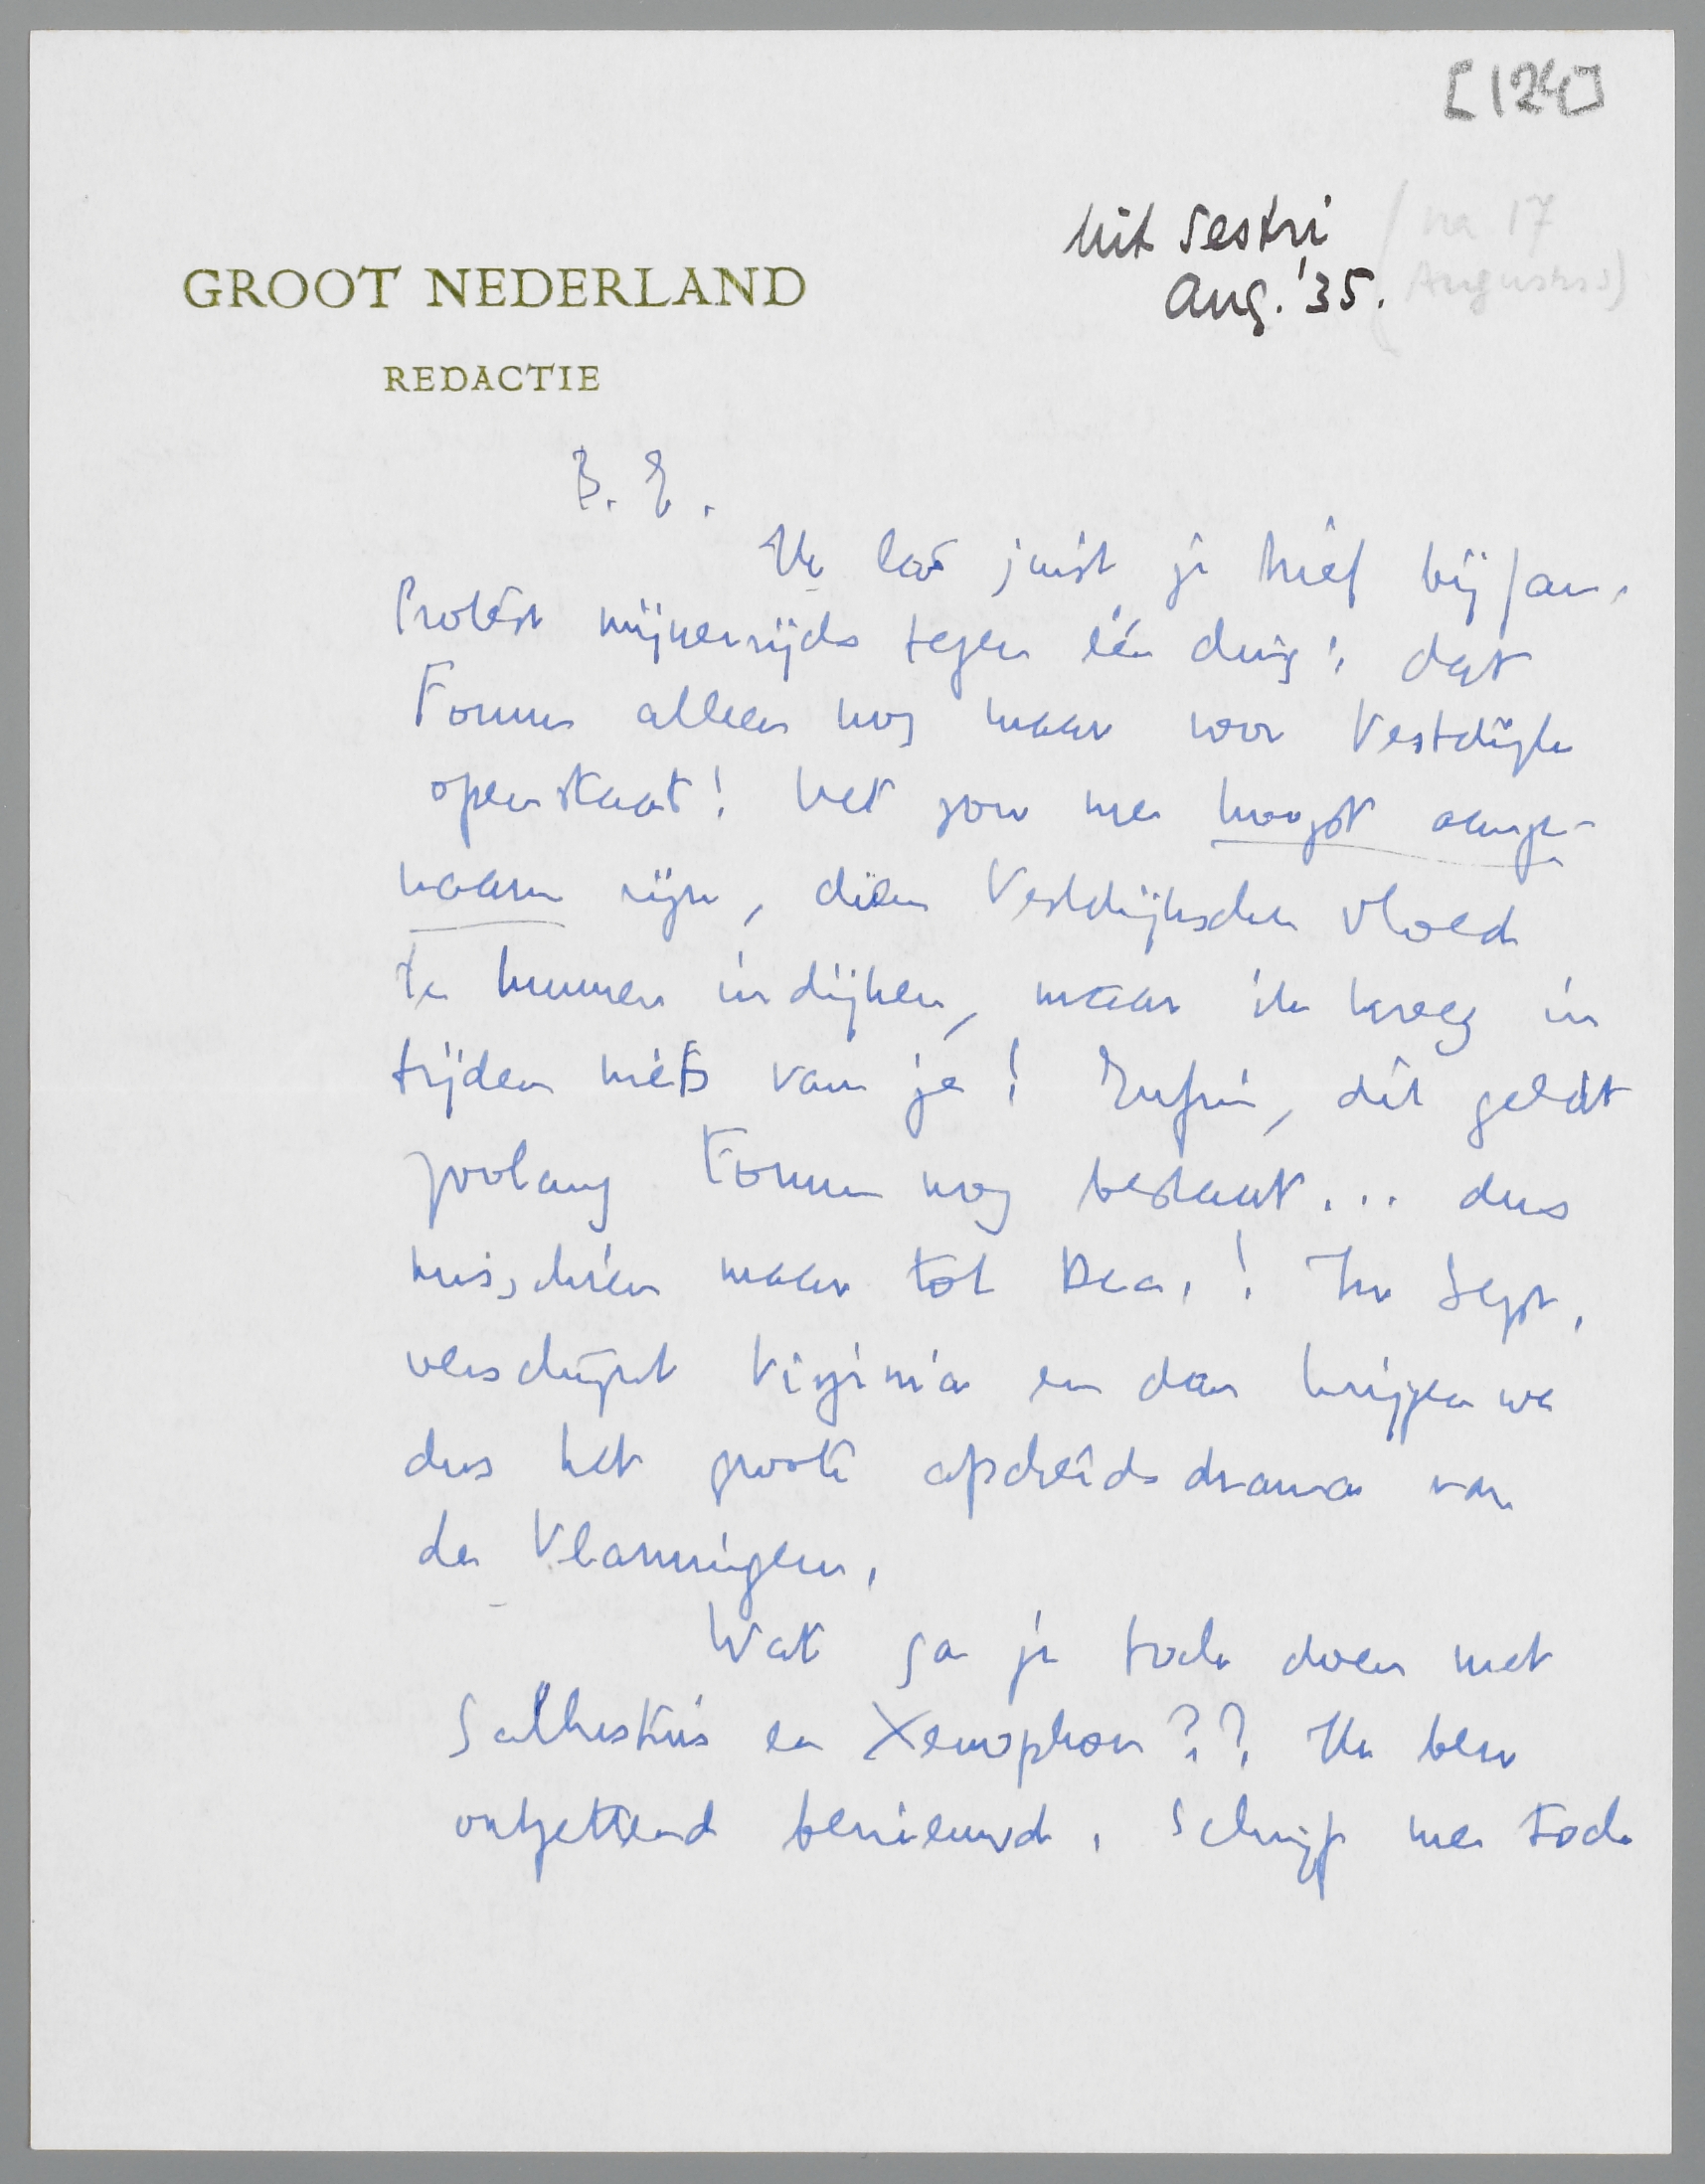 [124]
Uit Sestri
Aug. '35.
(na 17
Augustus)
GROOT NEDERLAND
REDACTIE
B. E.
Ik las juist je brief bij Jan.
Protest mijnerzijds tegen één ding: dat
Forum alleen nog maar voor Vestdijk
openstaat! Het zou me hoogst aange-
naam zijn, dien Vestdijkschen vloed
te kunnen indijken, maar ik kreeg in
tijden niets van je! Enfin, dit geldt
zoolang Forum nog bestaat... dus
misschien maar tot Dec.! In Sept.
verschijnt Virginia en dan krijgen we
dus het groote afscheidsdrama van
de Vlamingen.
Wat ga je toch doen met
Sallustius en Xenophon?? Ik ben
ontzettend benieuwd. Schrijf me toch